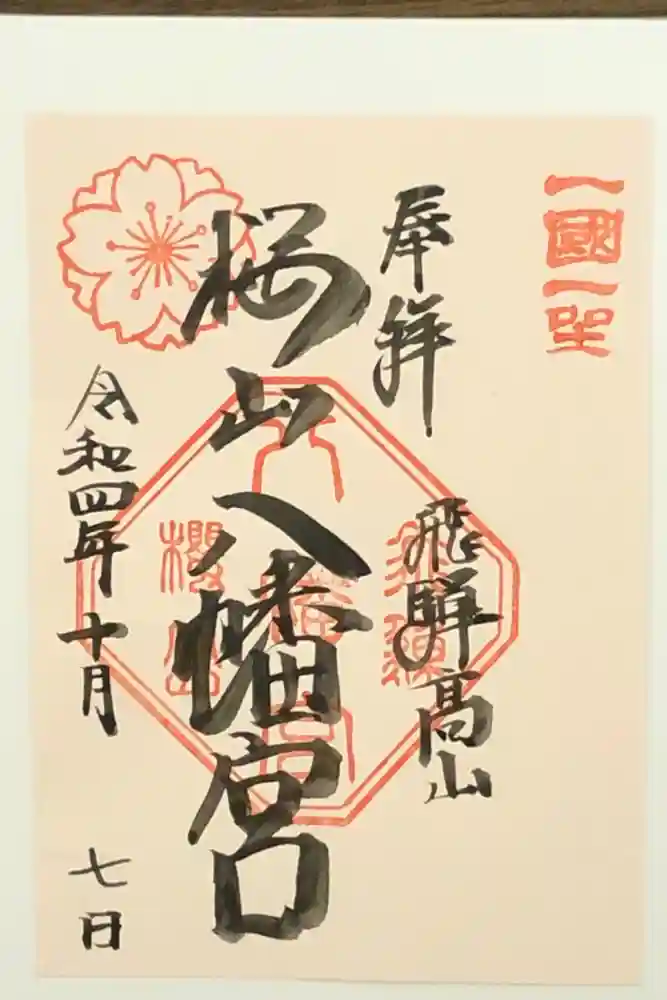 一國一社
奉拝
飛騨高山
桜山八幡宮
八幡宮
櫻山
令和四年十月七日